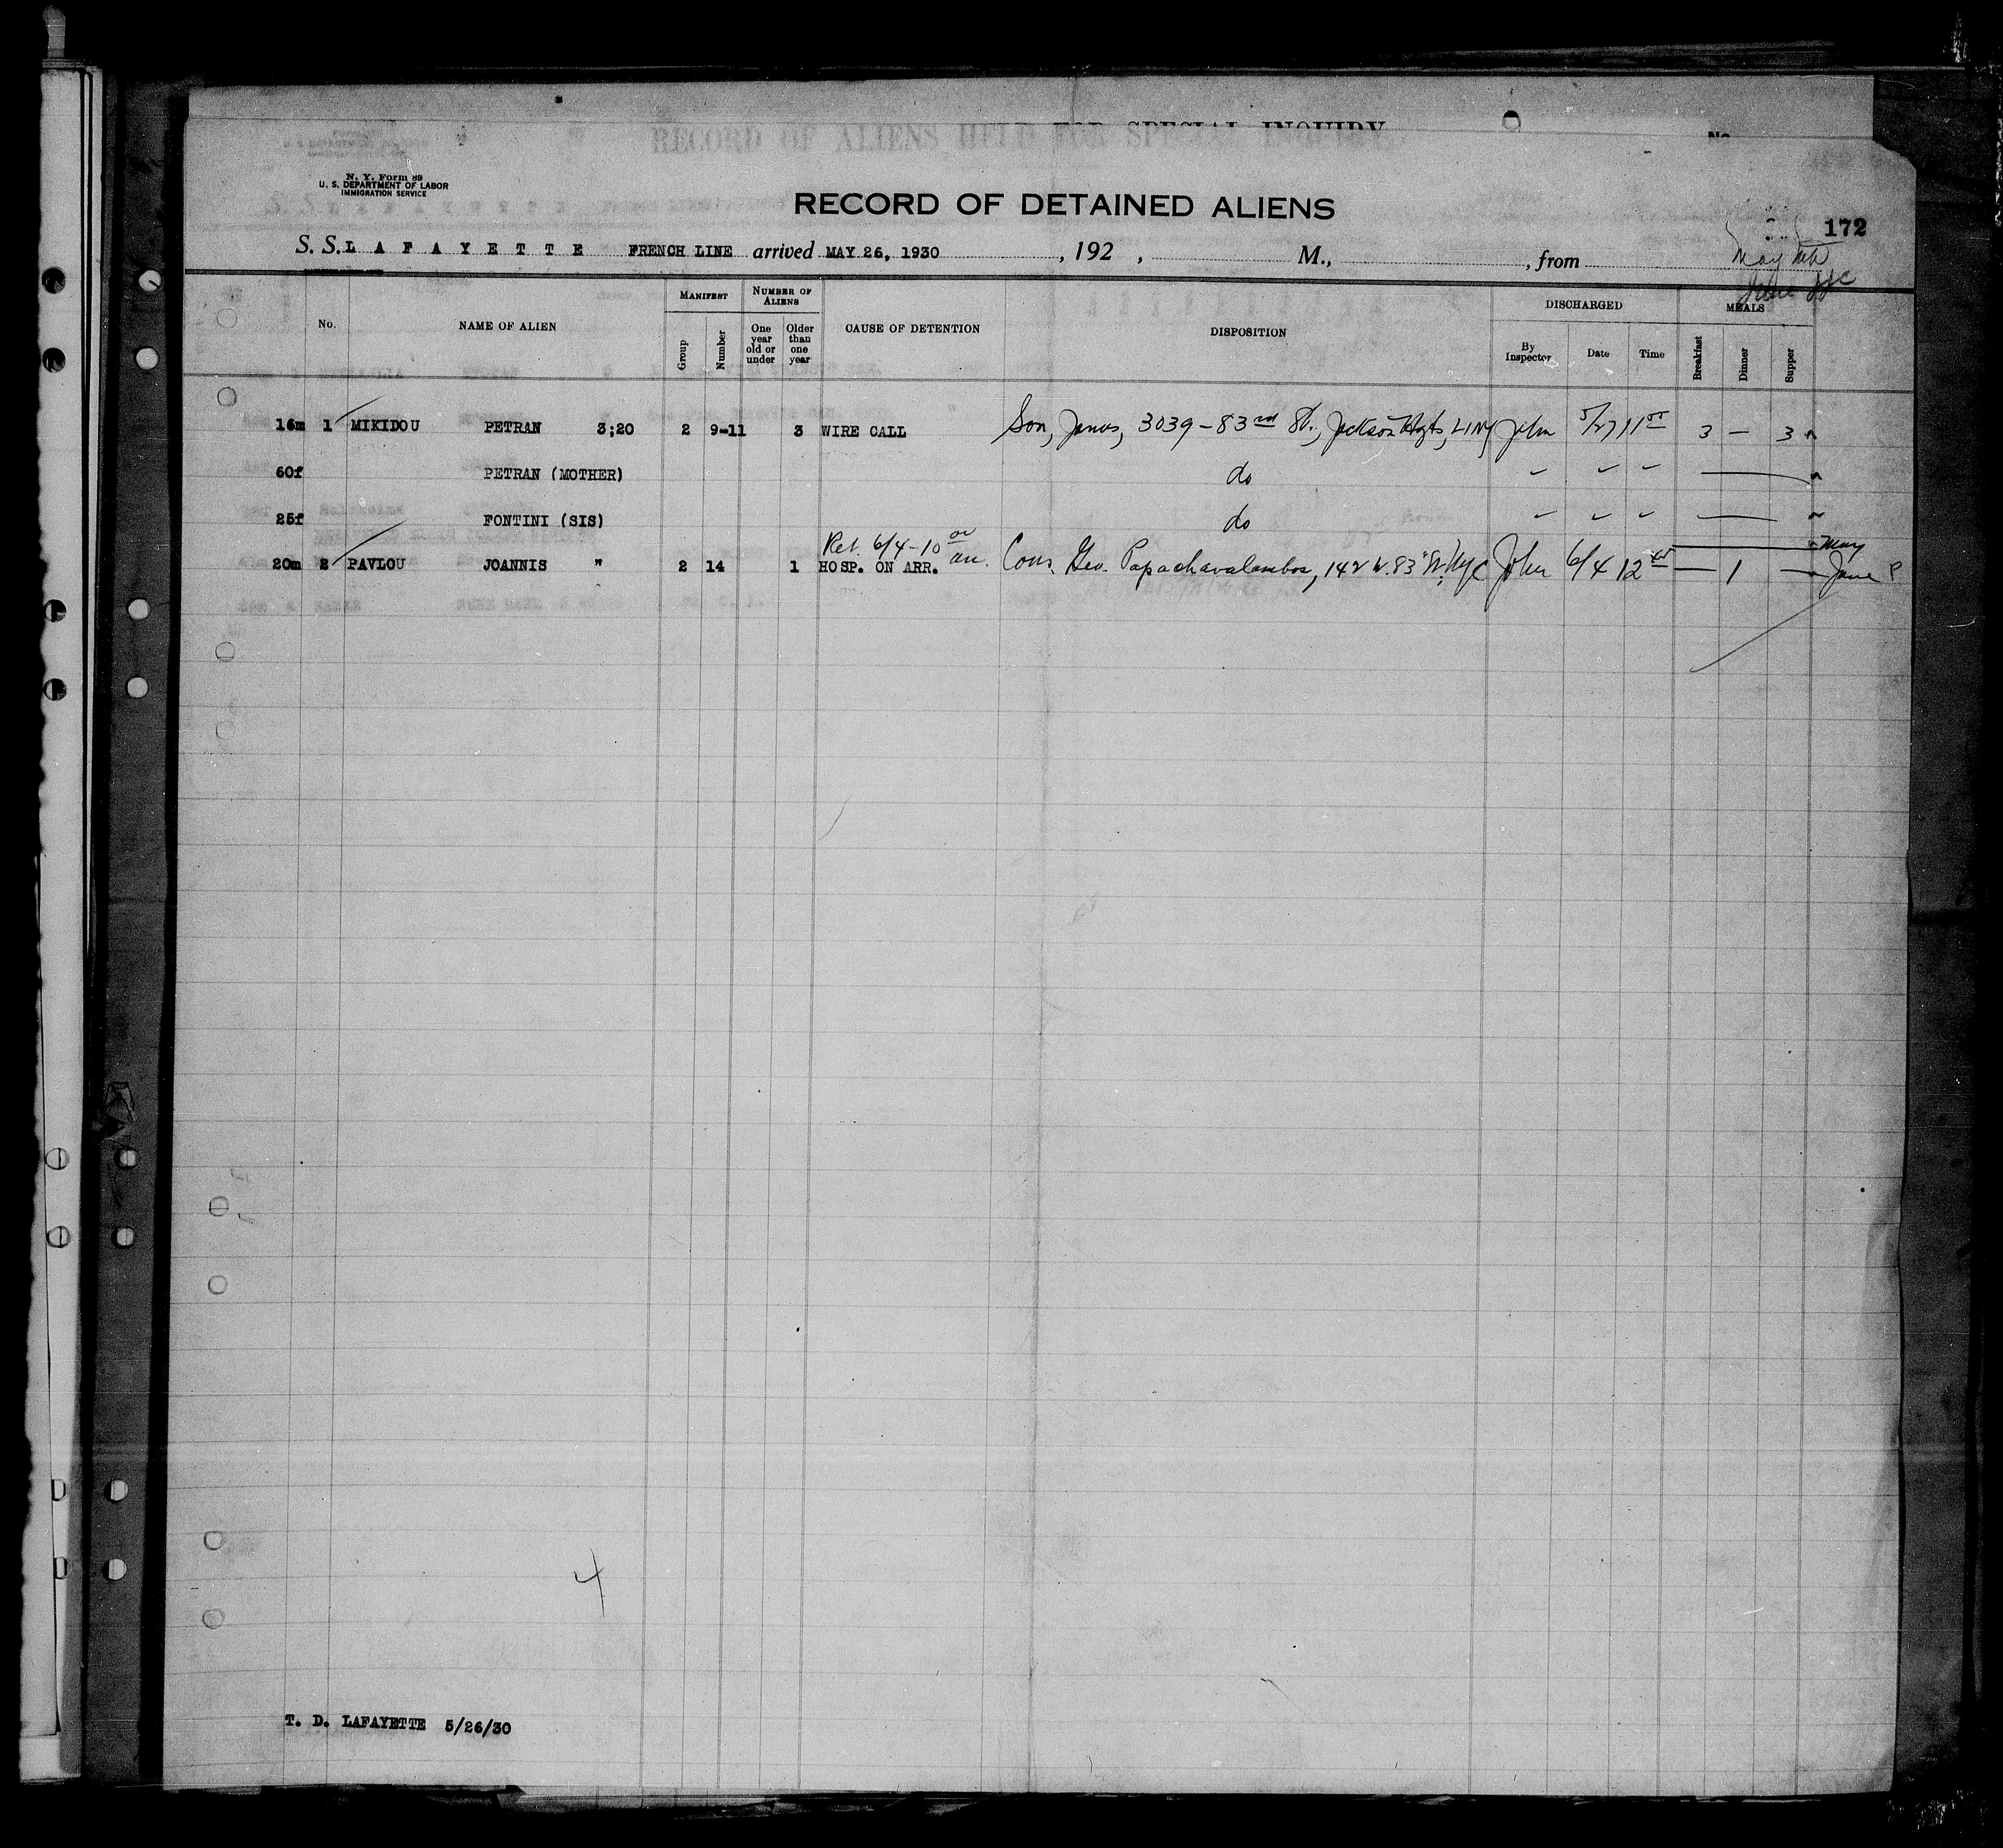 RECORD OF ALIENS HELD FOR SPECIAL INQUIRY
No.
N. Y. Form 89
U. S. DEPARTMENT OF LABOR
IMMIGRATION SERVICE
RECORD OF DETAINED ALIENS
172
S. S. L A F A Y E T T E FRENCH LINE arrived MAY 26, 1930 , 192 , M., , from
May
June
No. NAME OF ALIEN MANIFEST Group Number NUMBER OF ALIENS One year old or under Older than one year CAUSE OF DETENTION DISPOSITION DISCHARGED By Inspector Date Time MEALS Breakfast Dinner Supper
16m 1 MIKIDOU PETRAN 3;20 2 9-11 3 WIRE CALL Son, 3039-83rd St., Jackson Hgts, LINY John 5/27 11 3 — 3
60f PETRAN (MOTHER) do
25f FONTINI (SIS) do
Ret. 6/4-10 am. May
20m 2 PAVLOU JOANNIS " 2 14 1 HOSP. ON ARR. Cous. Geo. 142 W. 83 St, NYC John 6/4 12 — 1 — June
4
T. D. LAFAYETTE 5/26/30